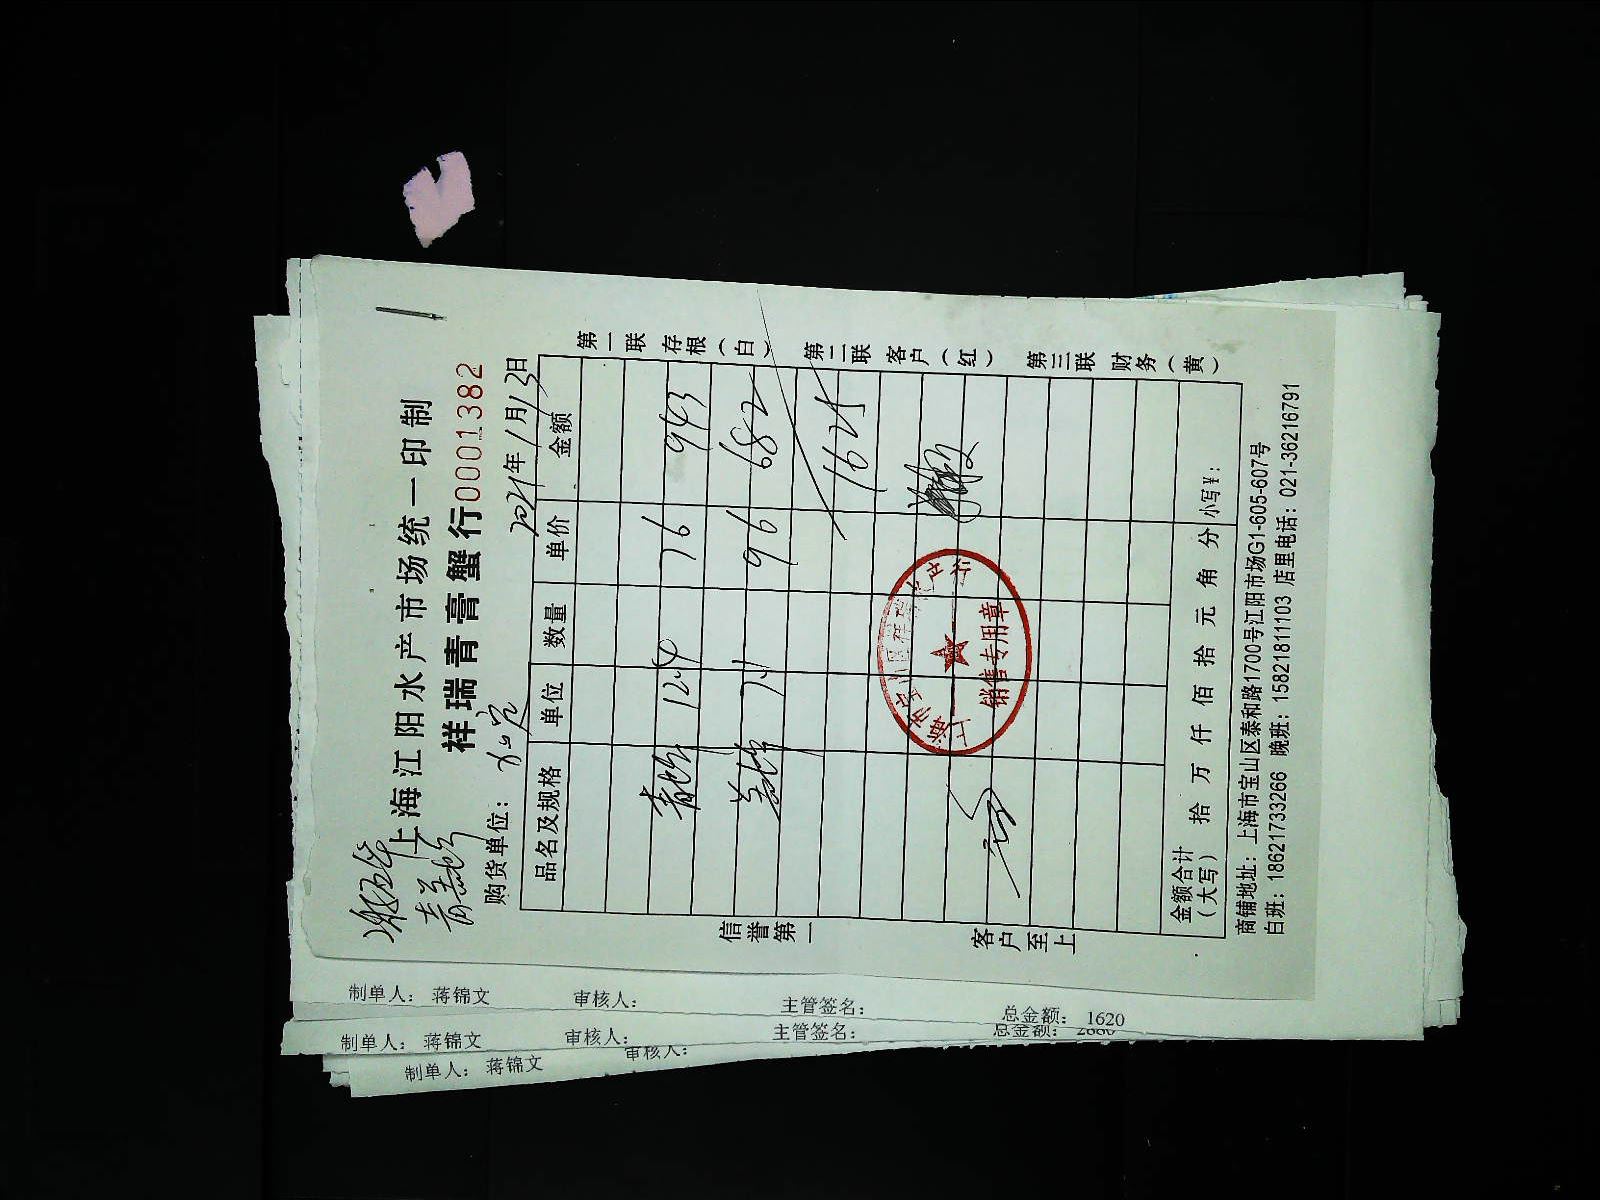 上海江阳水产市场统一印制
祥瑞青膏蟹行 00001382
购货单位：
2021年1月13日
品名及规格 单位 数量 单价 金额
76 943
96 682
1625
金额合计（大写） 拾 万 仟 佰 拾 元 角 分 小写¥：
商铺地址：上海市宝山区泰和路1700号江阳市场G1-605-607号
白班：18621733266 晚班：15821811103 店里电话：021-36216791
信誉第一
客户至上
第一联 存根（白）
第二联 客户（红）
第三联 财务（黄）
销售专用章
制单人：蒋锦文 审核人： 主管签名： 总金额：1620
制单人：蒋锦文 审核人： 主管签名： 总金额：
制单人：蒋锦文 审核人：